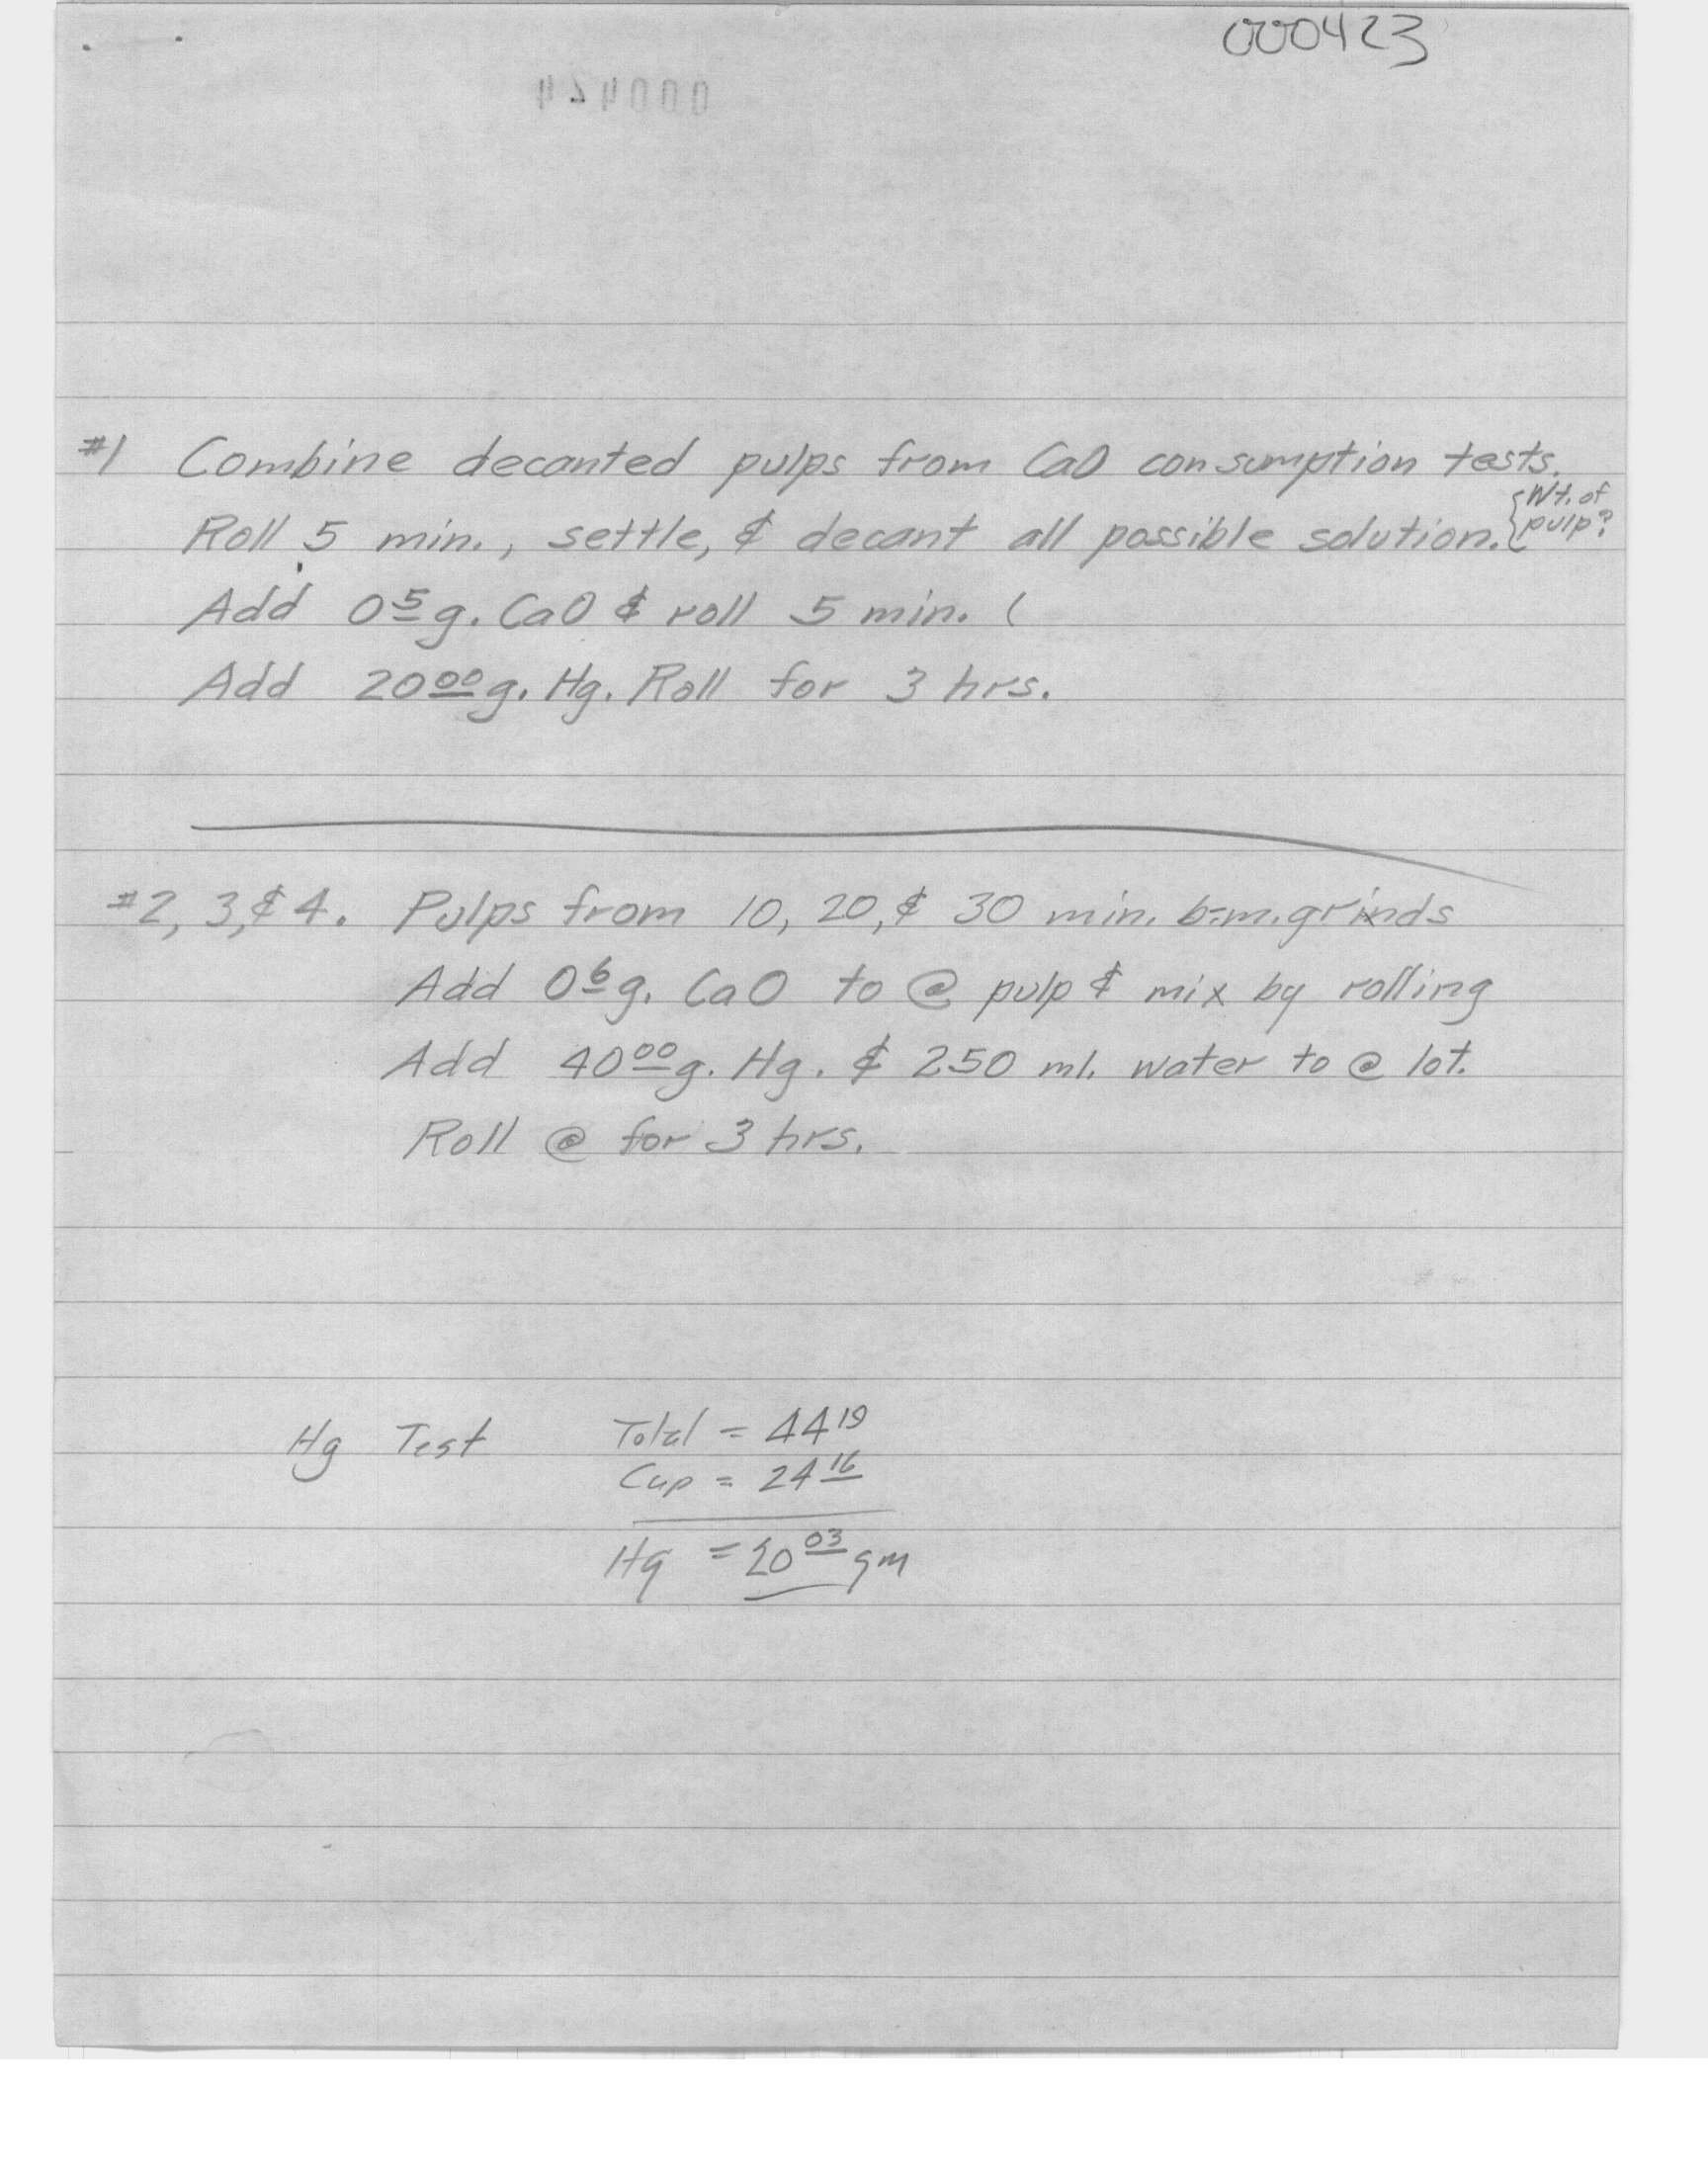 000423
000424
#1 Combine decanted pulps from CaO consumption tests.
Roll 5 min., settle, & decant all possible solution. {Wt. of pulp?
Add 0⁵g. CaO & roll 5 min. (
Add 20⁰⁰g. Hg. Roll for 3 hrs.
#2, 3, & 4. Pulps from 10, 20, & 30 min. b.m. grinds
Add 0⁶g. CaO to @ pulp & mix by rolling
Add 40⁰⁰g. Hg. & 250 ml. water to @ lot.
Roll @ for 3 hrs.
Hg Test Total = 44¹⁹
Cup = 24¹⁶
Hg = 20⁰³ gm